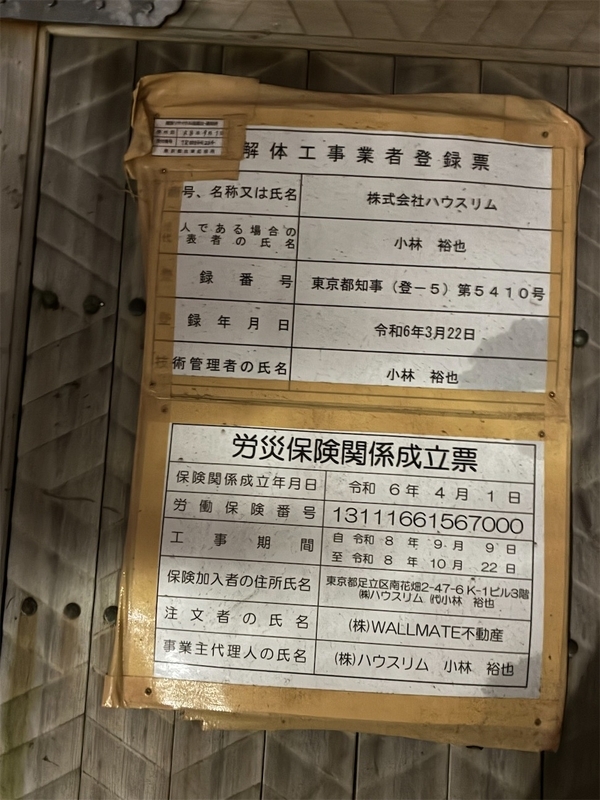 解体工事業者登録票
号、名称又は氏名 株式会社ハウスリム
人である場合の
表者の氏名 小林 裕也
録番号 東京都知事（登－5）第5410号
録年月日 令和6年3月22日
術管理者の氏名 小林 裕也
労災保険関係成立票
保険関係成立年月日 令和 6年 4月 1日
労働保険番号 13111661567000
工事期間 自 令和 8 年 9 月 9 日
至 令和 8 年 10 月 22 日
保険加入者の住所氏名 東京都足立区南花畑2-47-6 K-1ビル3階
㈱ハウスリム ㈹小林 裕也
注文者の氏名 (株)WALLMATE不動産
事業主代理人の氏名 (株)ハウスリム 小林 裕也